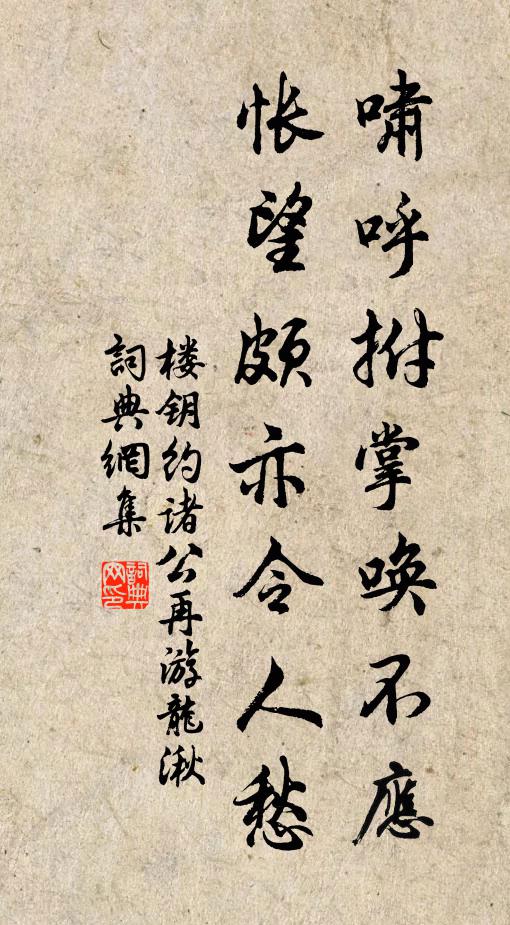 嘯呼拊掌喚不應
悵望頗亦令人愁
楼钥约诸公再游龍湫
詞典網集
詞典網印